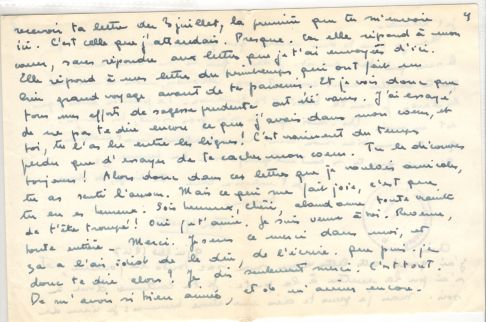 recevoir ta lettre du 3 juillet, la première que tu m'envoie
ici. C'est celle que j'attendais. Presque. Car elle répond à mon
coeur, sans répondre aux lettres que je t'ai envoyées d'ici.
Elle répond à mes lettres du printemps, qui ont fait un
bien grand voyage avant de te parvenir. Et je vois donc que
tous mes efforts de sagesse prudente ont été vains. J'ai essayé
de ne pas te dire encore ce que j'avais dans mon coeur, et
toi, tu l'as lu entre les lignes! C'est vraiment du temps
perdu que d'essayer de te cacher mon coeur. Tu le découvres
toujours! Alors donc dans ces lettres que je voulais amicales,
tu as senti l'amour. Mais ce qui me fait joie, c'est que
tu en es heureux. Sois heureux, chéri, abandonne toute crainte
de t'être trompé! Oui je t'aime. Je suis venue à toi. Revenue,
toute entière. Merci. Je sens ce merci dans moi, et
ça a l'air idiot de le dire, de l'écrire. Que puis-je
donc te dire alors? Je dis seulement merci. C'est tout.
De m'avoir si bien aimée, et de m'aimer encore.